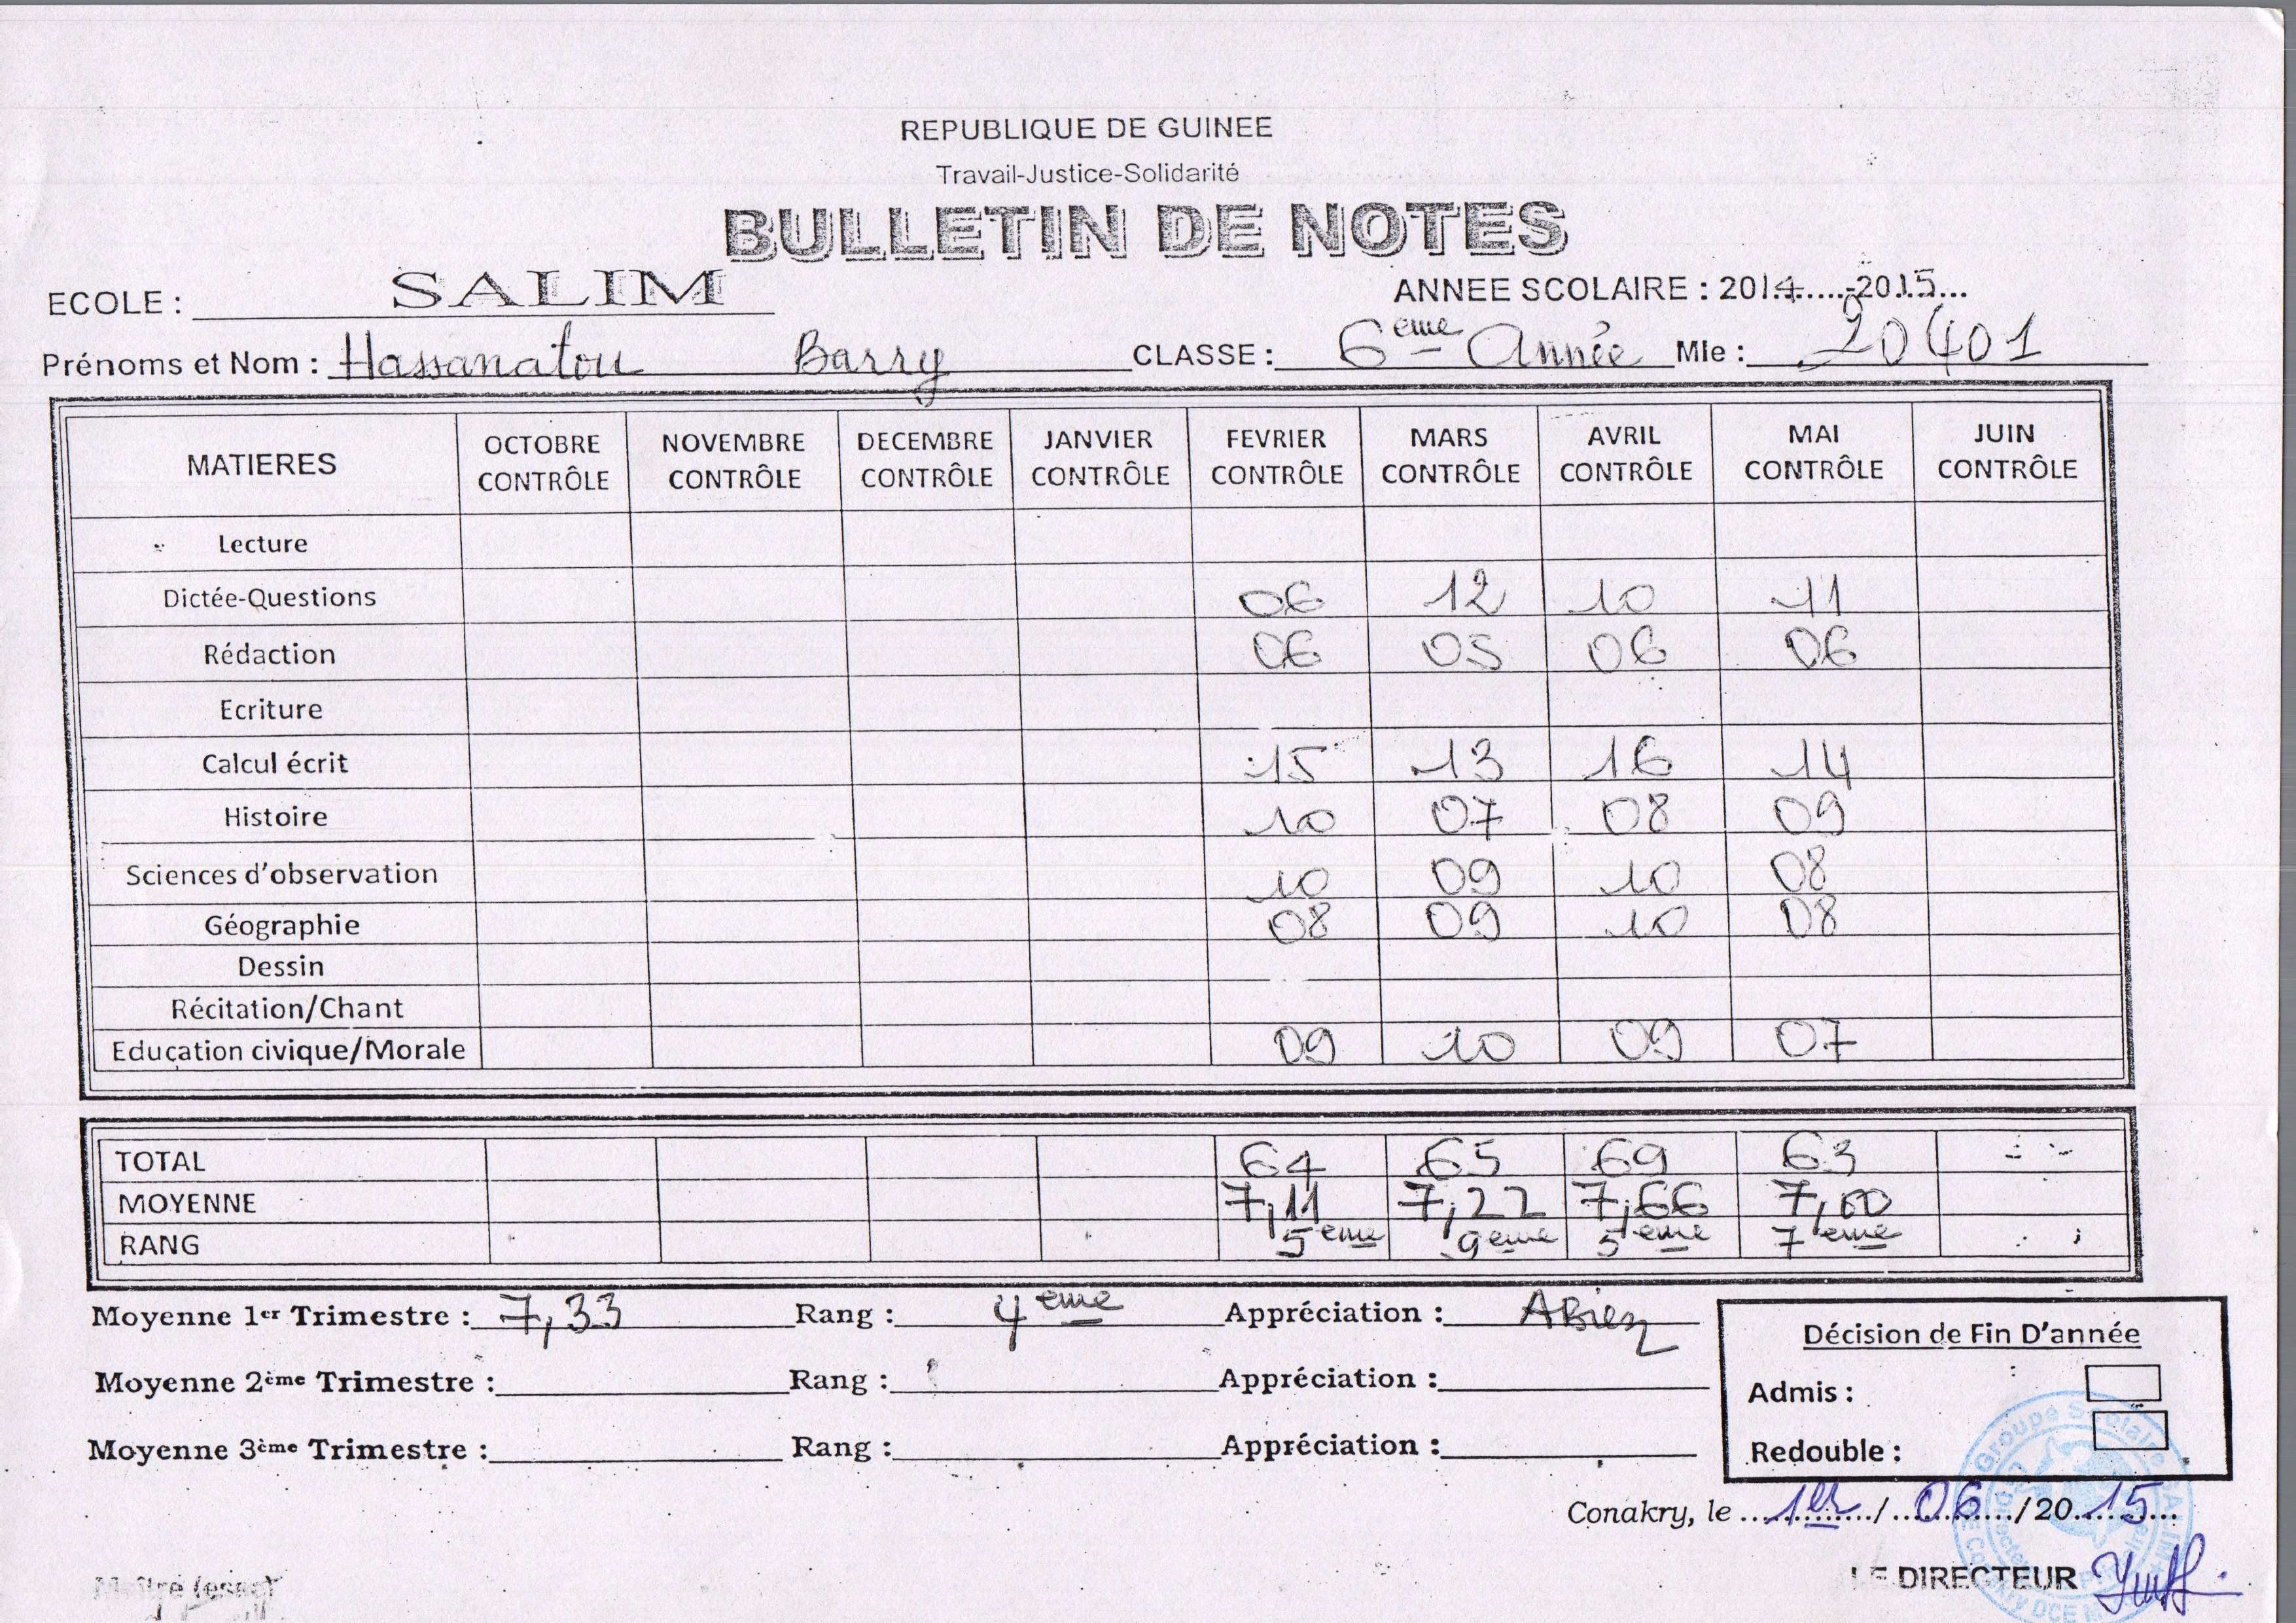 REPUBLIQUE DE GUINEE
Travail-Justice-Solidarité
BULLETIN DE NOTES
ECOLE : SALIM ANNEE SCOLAIRE : 2014......-2015...
Prénoms et Nom : Hassanatou Barry CLASSE : 6eme Année Mle : 20401
MATIERES OCTOBRE CONTRÔLE NOVEMBRE CONTRÔLE DECEMBRE CONTRÔLE JANVIER CONTRÔLE FEVRIER CONTRÔLE MARS CONTRÔLE AVRIL CONTRÔLE MAI CONTRÔLE JUIN CONTRÔLE
Lecture
Dictée-Questions 06 12 10 11
Rédaction 06 05 06 06
Ecriture
Calcul écrit 15 13 16 14
Histoire 10 07 08 09
Sciences d'observation 10 09 10 08
Géographie 08 09 10 08
Dessin
Récitation/Chant
Education civique/Morale 09 10 09 07
TOTAL 64 65 69 63
MOYENNE 7,11 7,22 7,66 7,00
RANG 5eme 9eme 5eme 7eme
Moyenne 1er Trimestre : 7,33 Rang : 4eme Appréciation : ABien
Moyenne 2ème Trimestre : Rang : Appréciation :
Moyenne 3ème Trimestre : Rang : Appréciation :
Décision de Fin D'année
Admis :
Redouble :
Conakry, le 1er / 06 / 2015
LE DIRECTEUR
Groupe Scolaire SALIM